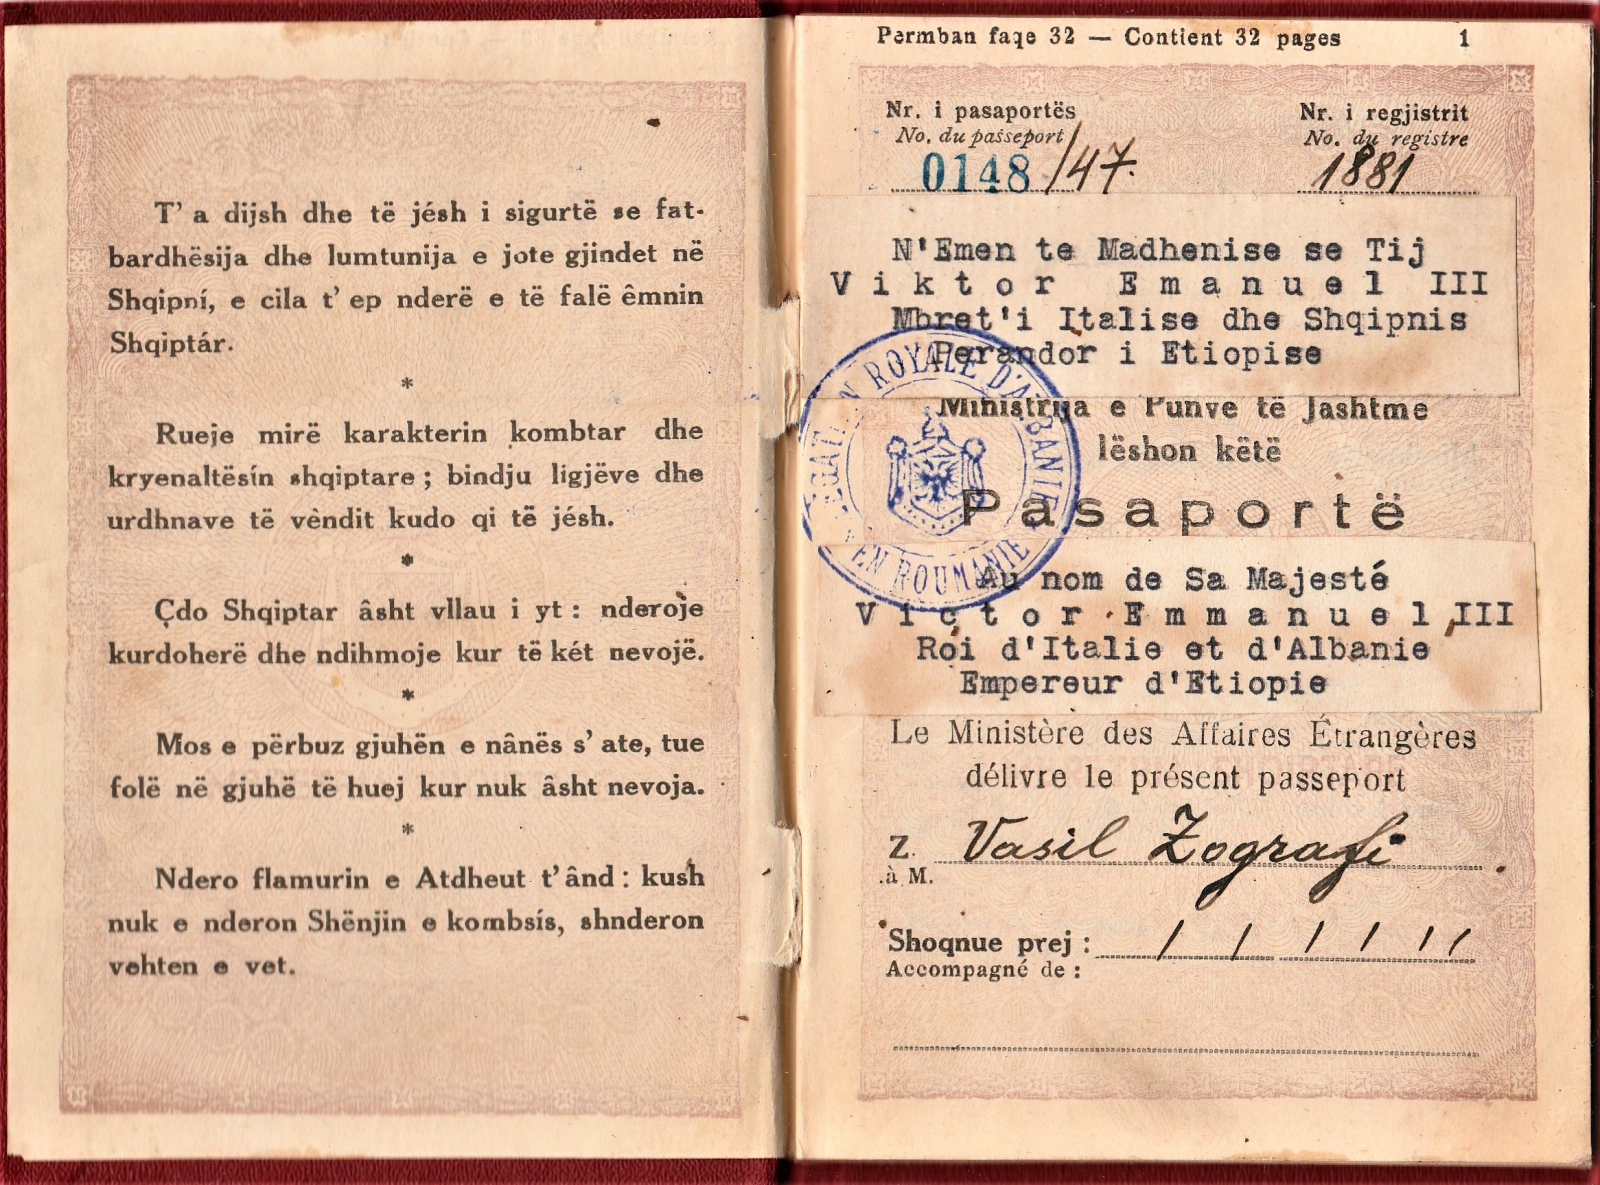 T' a dijsh dhe të jésh i sigurtë se fat-
bardhësija dhe lumtunija e jote gjindet në
Shqipní, e cila t' ep nderë e të falë êmnin
Shqiptár.
*
Rueje mirë karakterin kombtar dhe
kryenaltësín shqiptare ; bindju ligjëve dhe
urdhnave të vêndit kudo qi të jésh.
*
Çdo Shqiptar âsht vllau i yt : nderoje
kurdoherë dhe ndihmoje kur të két nevojë.
*
Mos e përbuz gjuhën e nânës s' ate, tue
folë në gjuhë të huej kur nuk âsht nevoja.
*
Ndero flamurin e Atdheut t'ând : kush
nuk e nderon Shënjin e kombsís, shnderon
vehten e vet.
Permban faqe 32 — Contient 32 pages 1
Nr. i pasaportës Nr. i regjistrit
No. du passeport No. du registre
0148/47. 1881
N'Emen te Madhenise se Tij
Viktor Emanuel III
Mbret'i Italise dhe Shqipnis
Perandor i Etiopise
Ministrija e Punve të Jashtme
lëshon këtë
Pasaportë
LEGATION ROYALE D'ALBANIE
EN ROUMANIE
Au nom de Sa Majesté
Victor Emmanuel III
Roi d'Italie et d'Albanie
Empereur d'Etiopie
Le Ministère des Affaires Étrangères
délivre le présent passeport
Z. Vasil Zografi
à M.
Shoqnue prej : / / / / / /
Accompagné de :